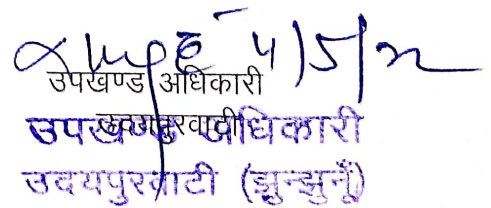 4/5/22
उपखण्ड अधिकारी
उदयपुरवाटी
उपखण्ड अधिकारी
उदयपुरवाटी (झुन्झुनूँ)